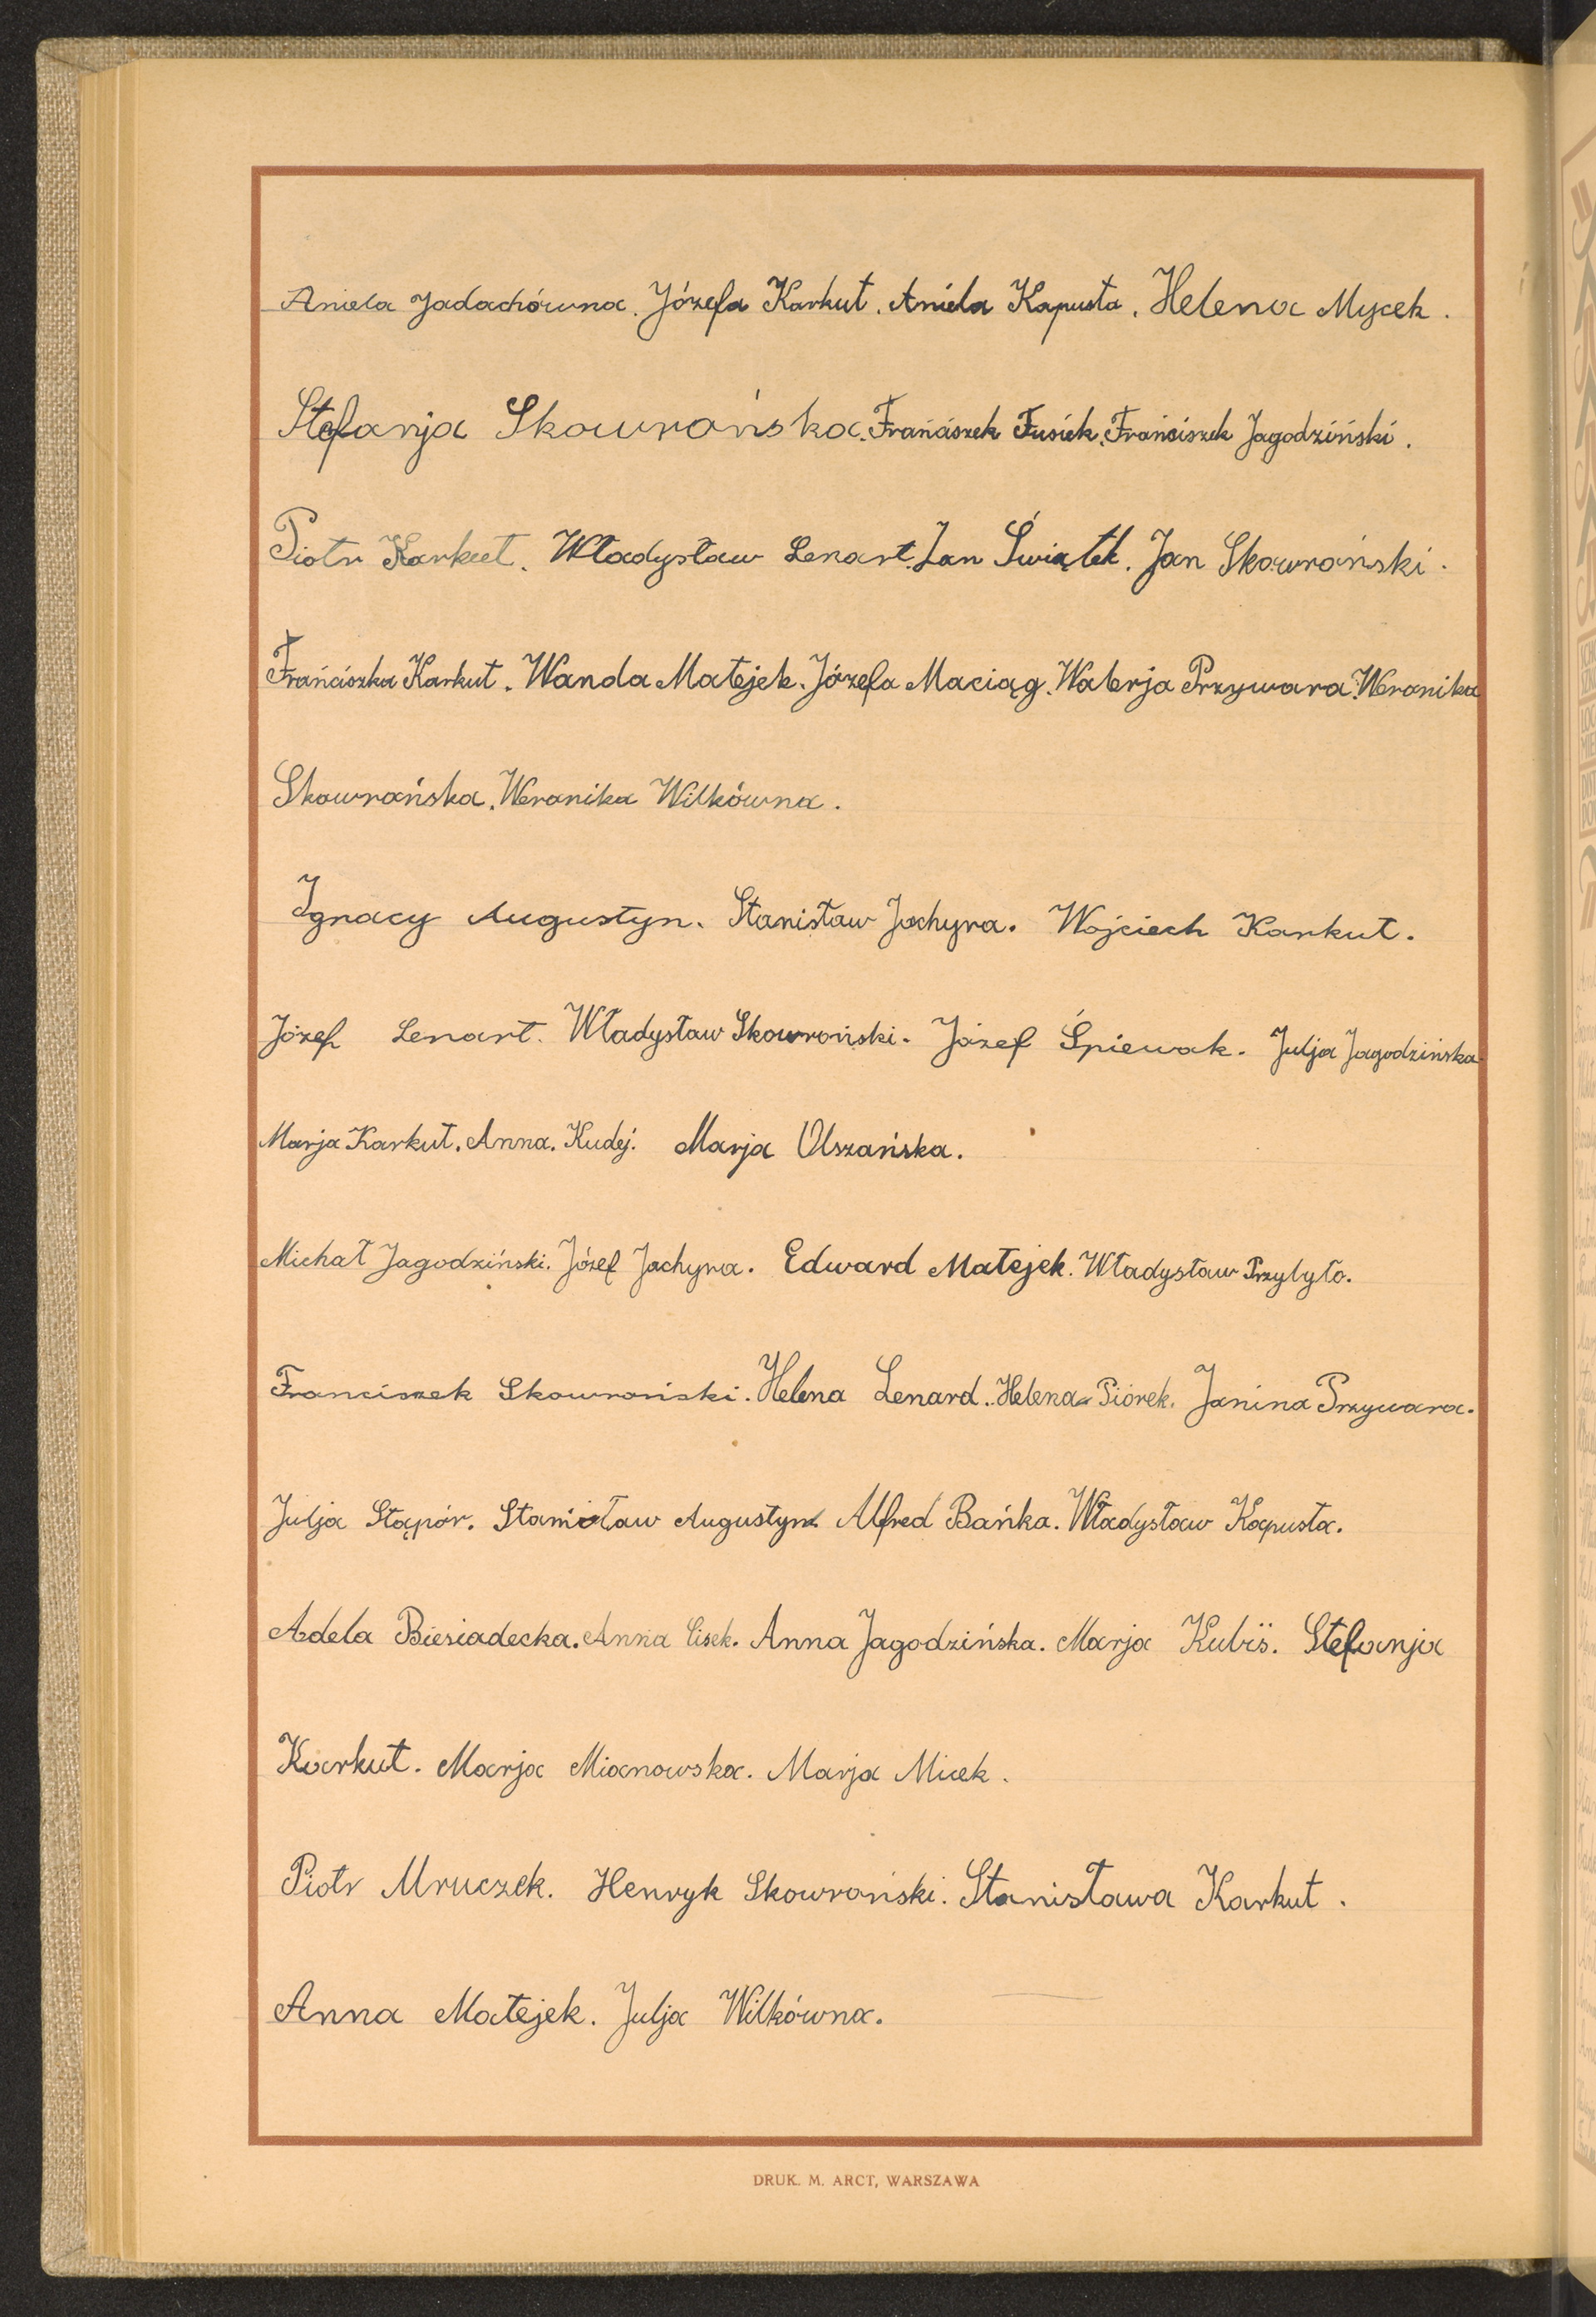 Aniela Jadachówna. Józefa Karkut. Aniela Kapusta. Helena Mycek.
Stefanja Skowrońska. Franciszek Fusiek. Franciszek Jagodziński.
Piotr Karkut. Władysław Lenart. Jan Świątek. Jan Skowroński.
Franciszka Karkut. Wanda Matejek. Józefa Maciąg. Walerja Przywara. Weronika
Skowrońska. Weronika Wilkówna.
Ignacy Augustyn. Stanisław Jachyra. Wojciech Karkut.
Józef Lenart. Władysław Skowroński. Józef Śpiewak. Julja Jagodzińska.
Marja Karkut. Anna. Kudej. Marja Olszańska.
Michał Jagodziński. Józef Jachyra. Edward Matejek. Władysław Przybyło.
Franciszek Skowroński. Helena Lenard. Helena Piórek. Janina Przywara.
Julja Stąpór. Stanisław Augustyn Alfred Bańka. Władysław Kapusta.
Adela Biesiadecka. Anna Cisek. Anna Jagodzińska. Marja Kubiś. Stefanja
Karkut. Marja Mianowska. Marja Micek.
Piotr Mruczek. Henryk Skowroński. Stanisława Karkut.
Anna Matejek. Julja Wilkówna.
DRUK. M. ARCT, WARSZAWA